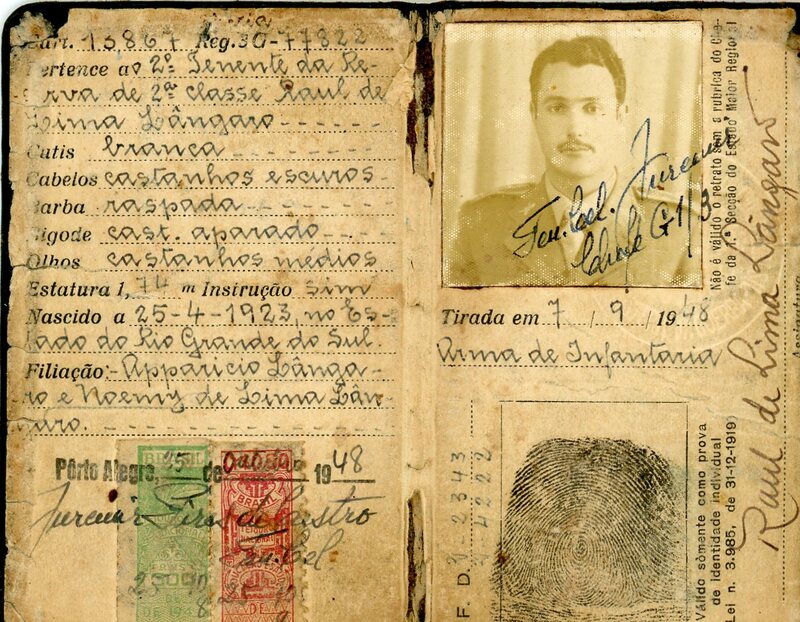 Cart. 13867 Reg. 3G-77822
Pertence ao 2º Tenente da Re-
serva de 2ª classe Raul de
Lima Lângaro
Cutis branca
Cabelos castanhos escuros
Barba raspada
Bigode cast. aparado
Olhos castanhos medios
Estatura 1,74 m Instrução sim
Nascido a 25-4-1923, no Es-
tado do Rio Grande do Sul.
Filiação:-Apparicio Lânga-
ro e Noemy de Lima Lân-
garo.
Pôrto Alegre, 25 de Outubro 1948
BRASIL
Ten. Cel.
Chefe G1/3
Tirada em 7/9/1948
Arma de Infantaria
F. D.
Não é válido o retrato sem a rubrica do Che-
fe da 1ª Secção do Estado Maior Regional
Raul de Lima Lângaro
Válido sòmente como prova
de identidade individual
Lei n. 3.985, de 31-12-1919)